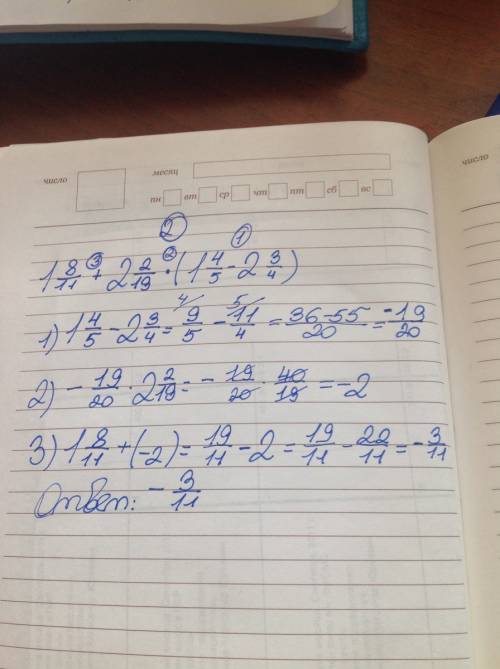 число месяц число
пн вт ср чт пт сб вс
②
③ ② ①
1 8/11 + 2 2/19 · (1 4/5 - 2 3/4)
4/ 5/
1) 1 4/5 - 2 3/4 = 9/5 - 11/4 = 36-55/20 = -19/20
2) - 19/20 · 2 2/19 = - 19/20 · 40/19 = -2
3) 1 8/11 + (-2) = 19/11 - 2 = 19/11 - 22/11 = - 3/11
Ответ: - 3/11